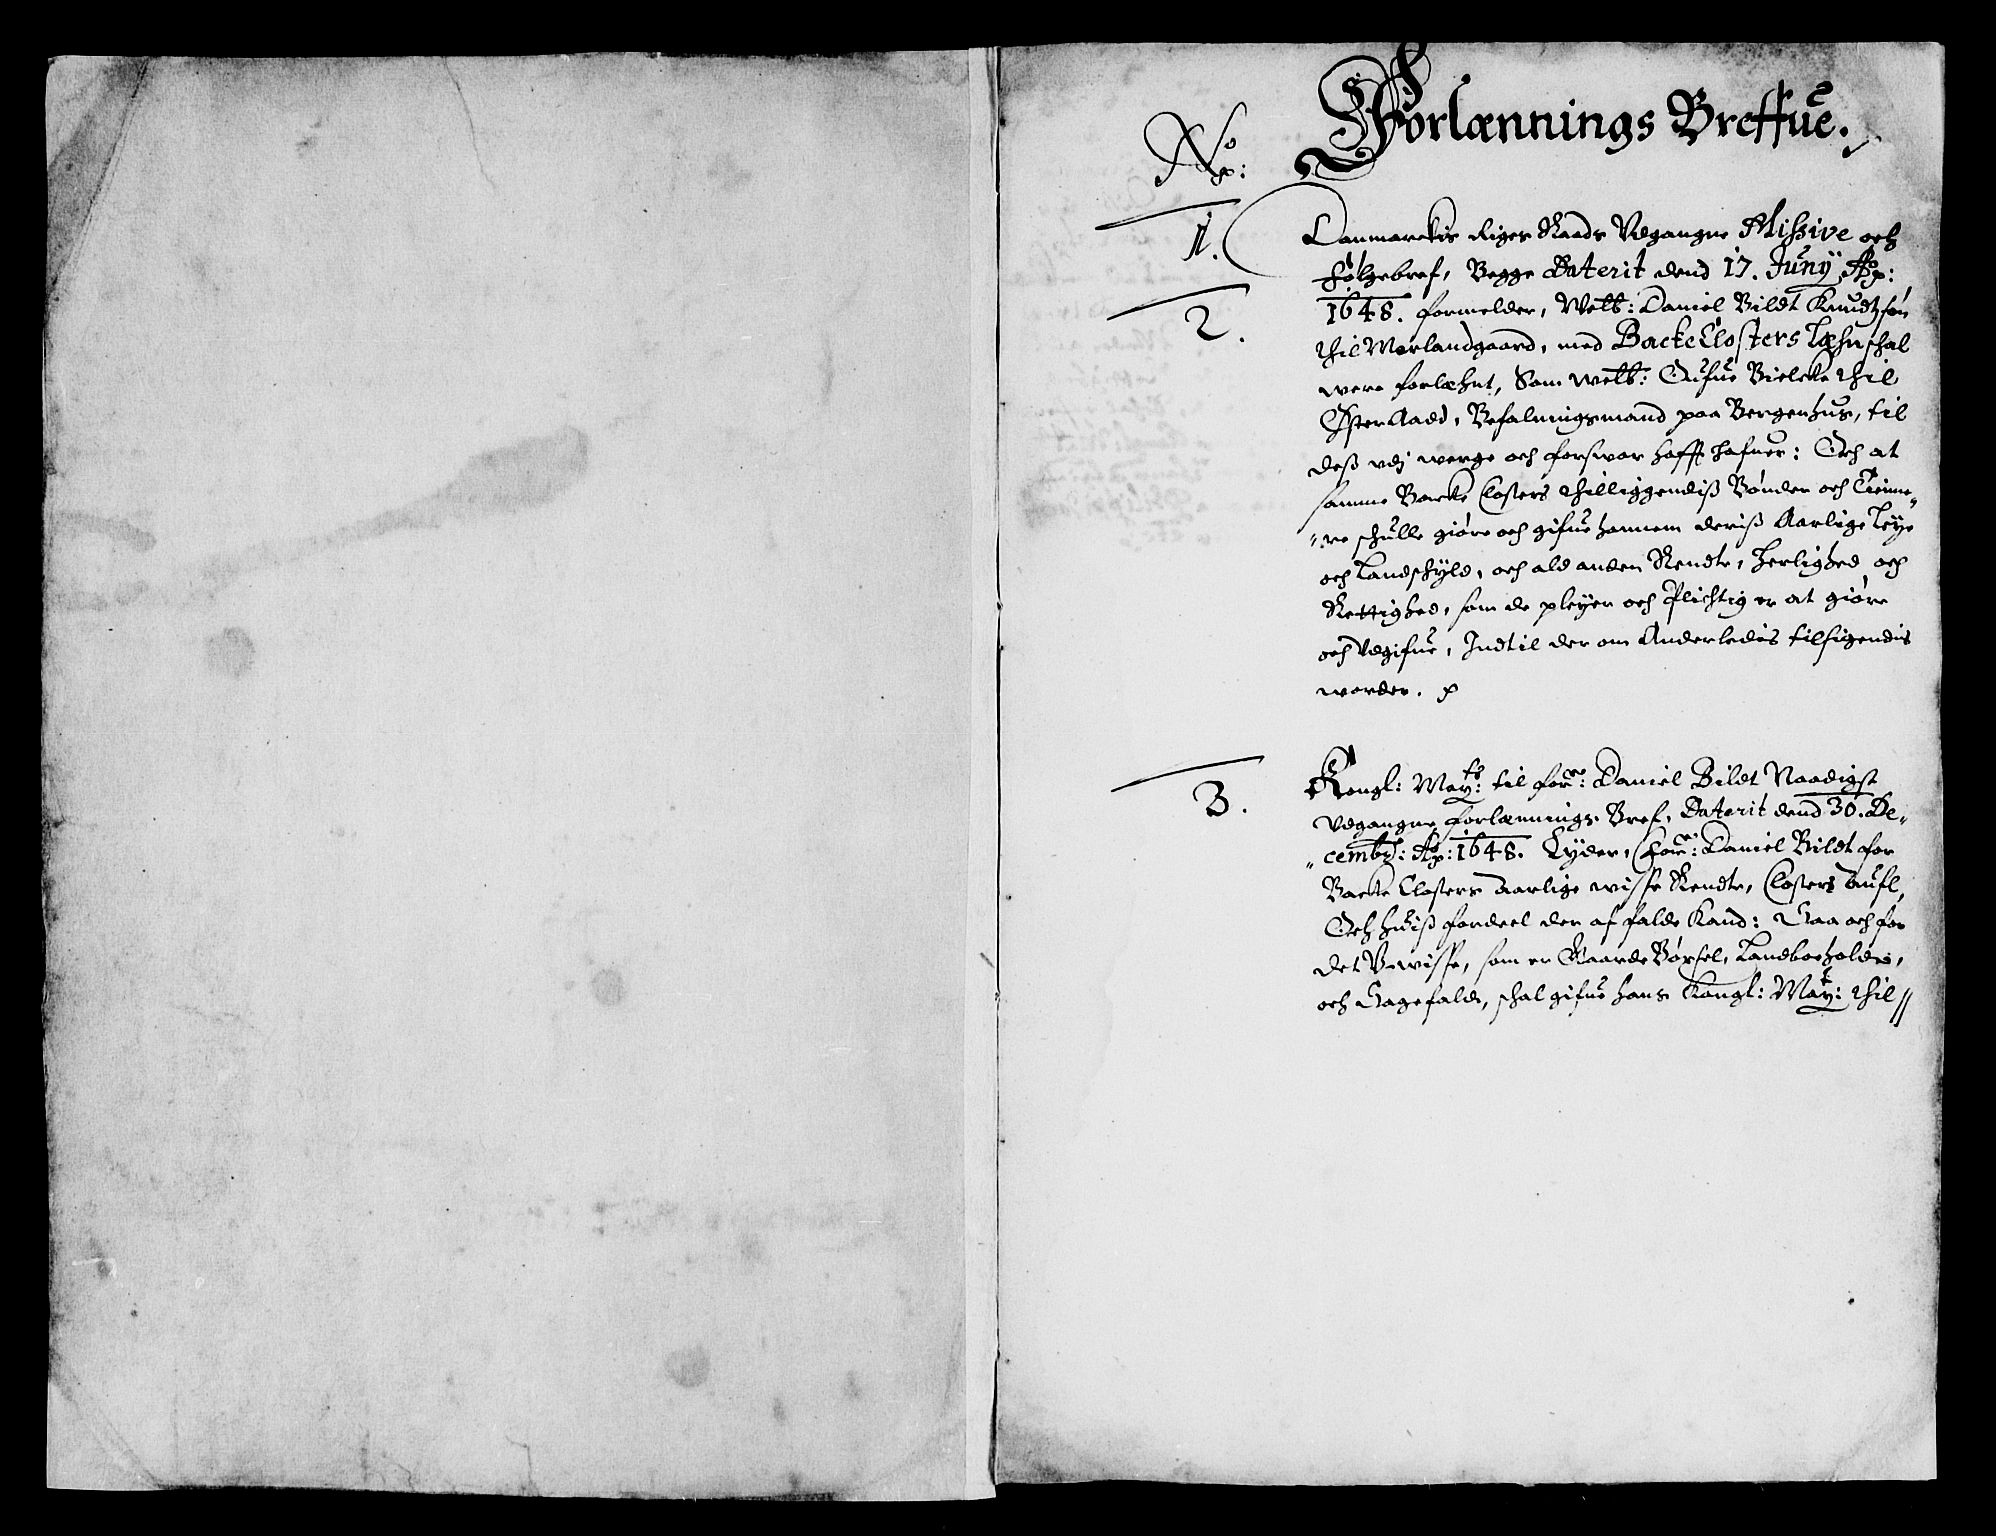 Forlænnings Breffue.
No:
1. Danmarckis Riges Raads Udgangne Missive och
2. følgebref, Begge Daterit dend 17. Juny Ao:
1648. formelder, Welb: Daniel Bildt Knudtzsøn
thil Morlandgaard, med Backe Closters Læhn schal
were forlæhnt, Som welb: Oufue Bielcke thil
Øster Aadt, Befalningsmand paa Bergenhus, til
deß udj werge och forswar hafft hafuer: Och at
samme Backe Closters thilliggendiß Bønder och Tienne„
„re schulle giøre och gifue hannem deriß Aarlige Leye
och Landschyld, och ald anden Rendte, herlighed och
Rettighed, som de pleyer och Plichtig er at giøre
och Udgifue, Indtil der om Anderledis tilsigendis
worder.
3. Kongl: Mayts: til forne: Daniel Bildt Naadigst
Udgangne forlænnings Bref, Daterit dend 30. De„
„cembr: Ao: 1648. Lyder, forne: Daniel Bildt for
Backe Closters Aarlige wisse Rendte, Closters Aufl,
Och hwiß fordeel der af falde Kand: Saa och for
det Uwisse, som er Gaarde Bøxsel, Landboeholdt,
och Sagefald, schal gifue hans Kongl: Mayt: thil //